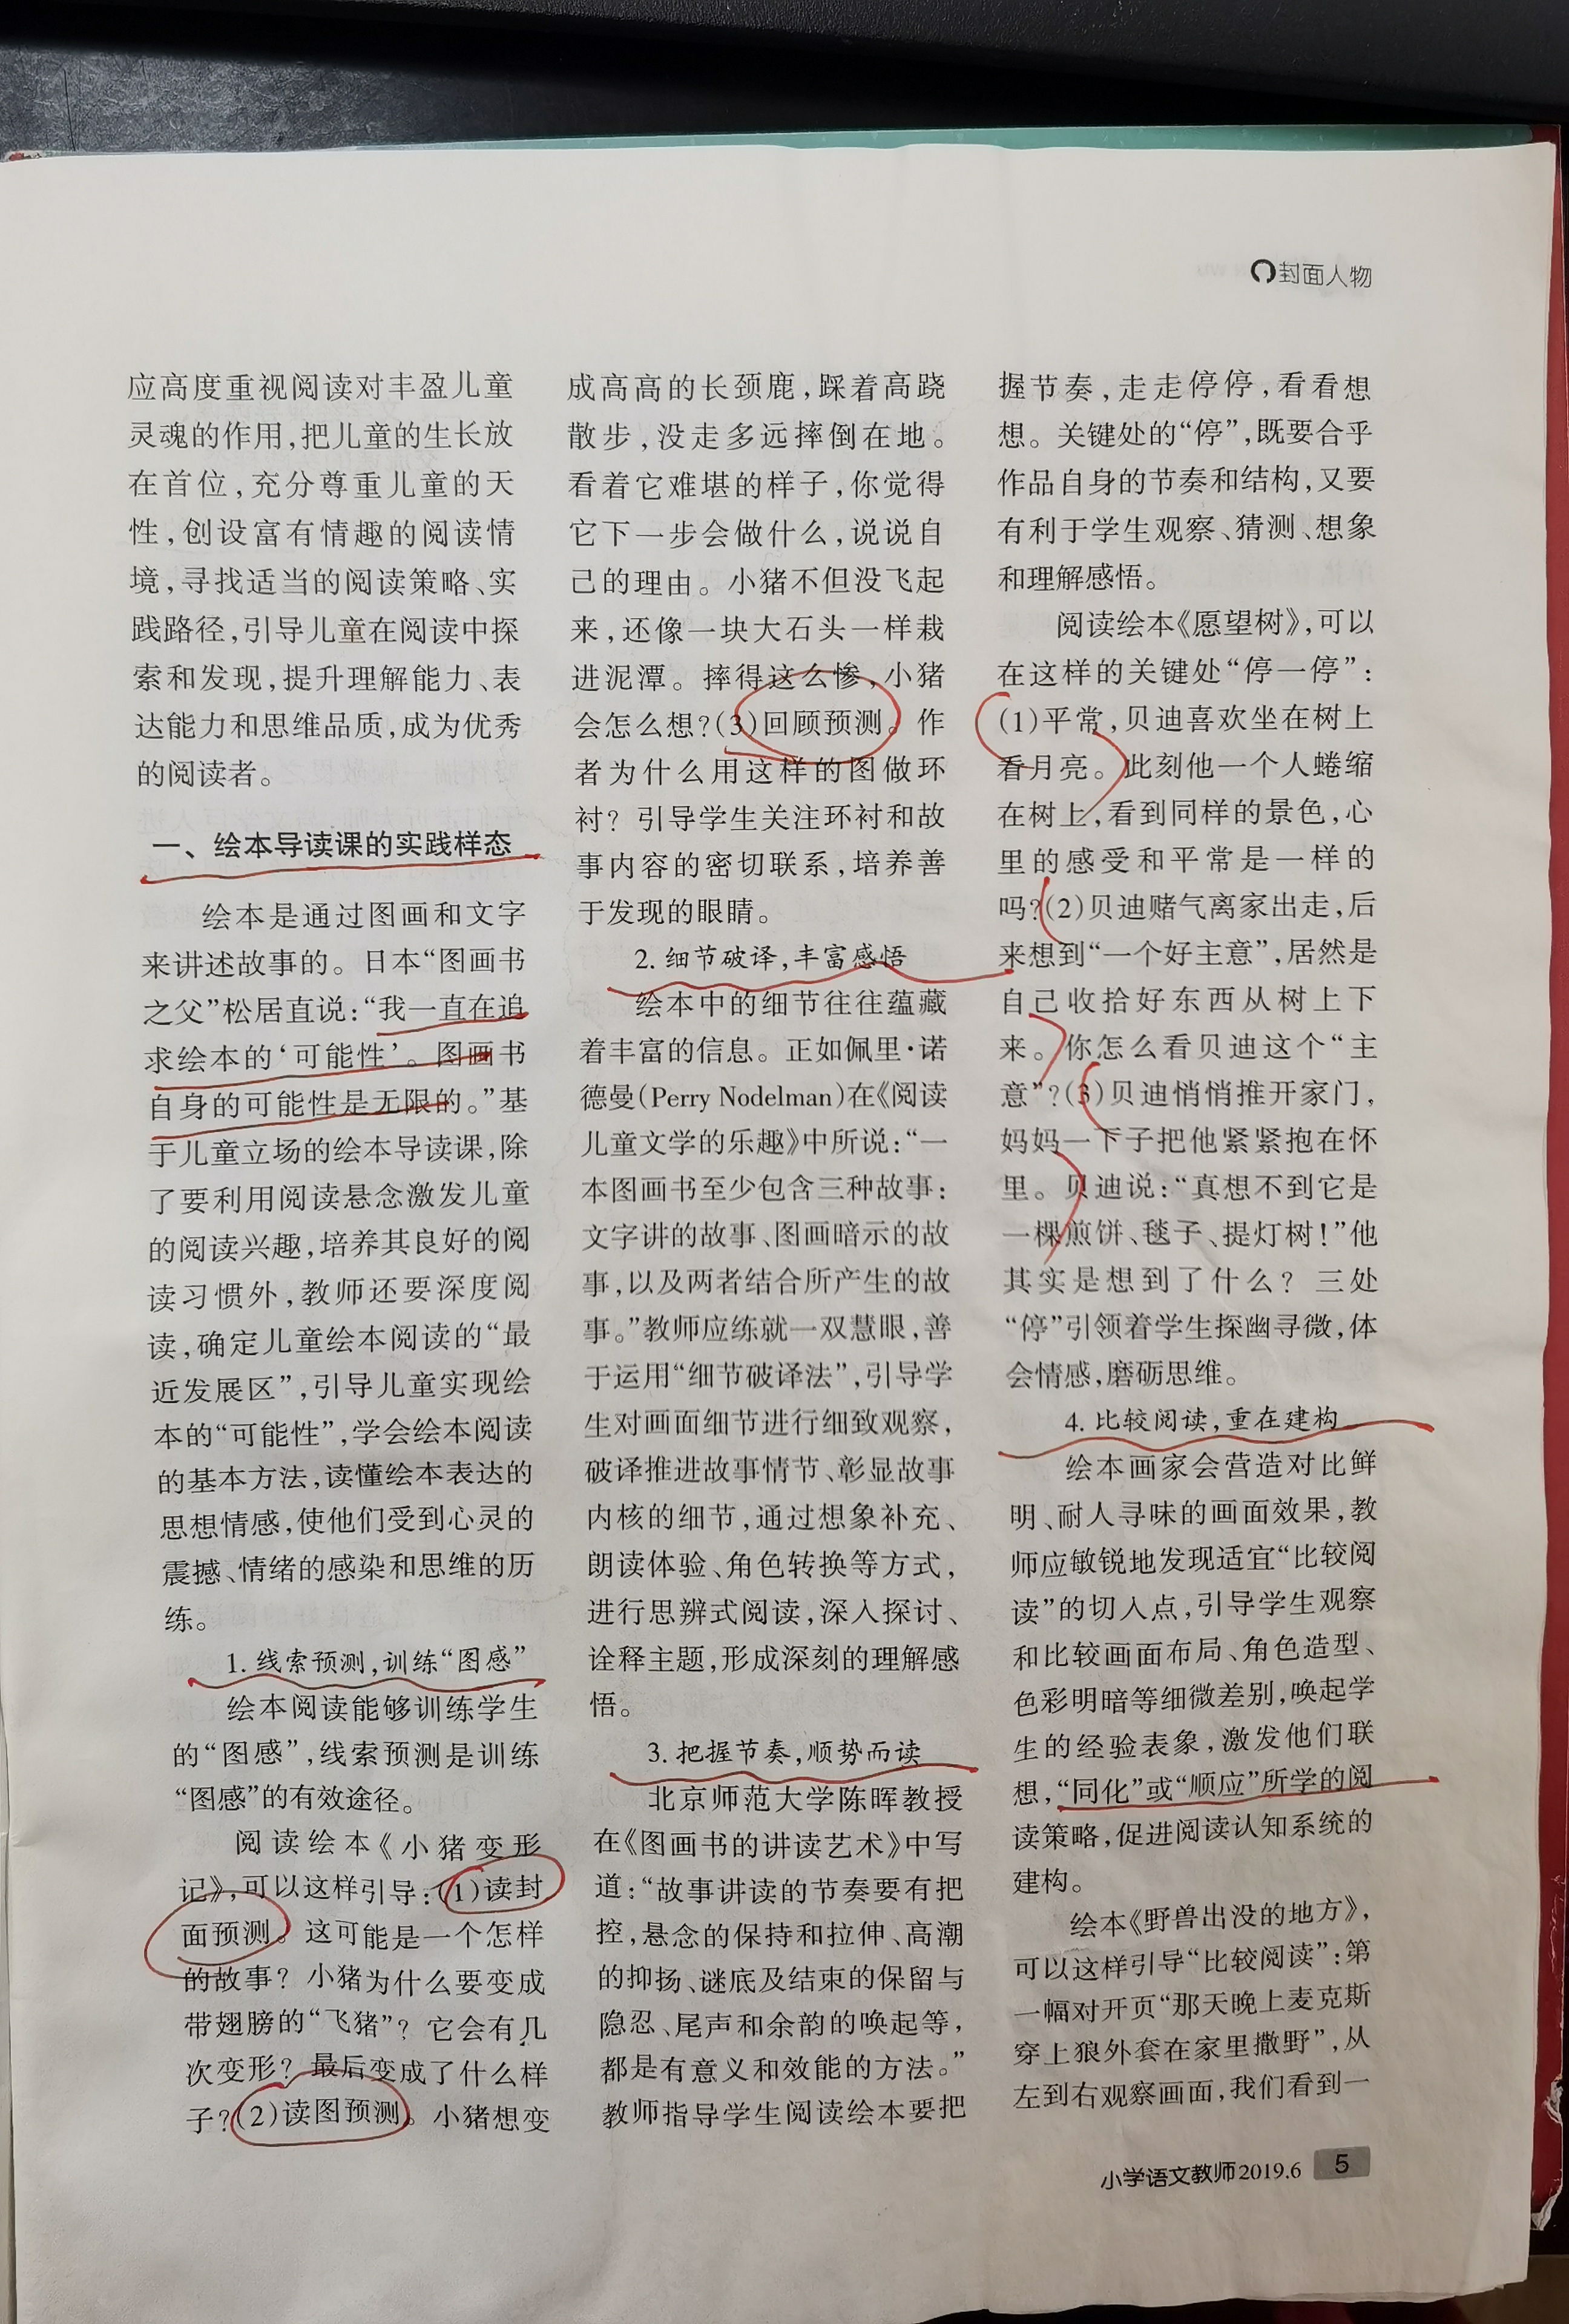 封面人物
应高度重视阅读对丰盈儿童
灵魂的作用,把儿童的生长放
在首位,充分尊重儿童的天
性,创设富有情趣的阅读情
境,寻找适当的阅读策略、实
践路径,引导儿童在阅读中探
索和发现,提升理解能力、表
达能力和思维品质,成为优秀
的阅读者。
一、绘本导读课的实践样态
绘本是通过图画和文字
来讲述故事的。日本“图画书
之父”松居直说:“我一直在追
求绘本的‘可能性’。图画书
自身的可能性是无限的。”基
于儿童立场的绘本导读课,除
了要利用阅读悬念激发儿童
的阅读兴趣,培养其良好的阅
读习惯外,教师还要深度阅
读,确定儿童绘本阅读的“最
近发展区”,引导儿童实现绘
本的“可能性”,学会绘本阅读
的基本方法,读懂绘本表达的
思想情感,使他们受到心灵的
震撼、情绪的感染和思维的历
练。
1. 线索预测,训练“图感”
绘本阅读能够训练学生
的“图感”,线索预测是训练
“图感”的有效途径。
阅读绘本《小猪变形
记》,可以这样引导:(1)读封
面预测。这可能是一个怎样
的故事？小猪为什么要变成
带翅膀的“飞猪”？它会有几
次变形？最后变成了什么样
子?(2)读图预测。小猪想变
成高高的长颈鹿,踩着高跷
散步,没走多远摔倒在地。
看着它难堪的样子,你觉得
它下一步会做什么,说说自
己的理由。小猪不但没飞起
来,还像一块大石头一样栽
进泥潭。摔得这么惨,小猪
会怎么想?(3)回顾预测。作
者为什么用这样的图做环
衬？引导学生关注环衬和故
事内容的密切联系,培养善
于发现的眼睛。
2. 细节破译,丰富感悟
绘本中的细节往往蕴藏
着丰富的信息。正如佩里·诺
德曼(Perry Nodelman)在《阅读
儿童文学的乐趣》中所说:“一
本图画书至少包含三种故事:
文字讲的故事、图画暗示的故
事,以及两者结合所产生的故
事。”教师应练就一双慧眼,善
于运用“细节破译法”,引导学
生对画面细节进行细致观察,
破译推进故事情节、彰显故事
内核的细节,通过想象补充、
朗读体验、角色转换等方式,
进行思辨式阅读,深入探讨、
诠释主题,形成深刻的理解感
悟。
3. 把握节奏,顺势而读
北京师范大学陈晖教授
在《图画书的讲读艺术》中写
道:“故事讲读的节奏要有把
控,悬念的保持和拉伸、高潮
的抑扬、谜底及结束的保留与
隐忍、尾声和余韵的唤起等,
都是有意义和效能的方法。”
教师指导学生阅读绘本要把
握节奏,走走停停,看看想
想。关键处的“停”,既要合乎
作品自身的节奏和结构,又要
有利于学生观察、猜测、想象
和理解感悟。
阅读绘本《愿望树》,可以
在这样的关键处“停一停”:
(1)平常,贝迪喜欢坐在树上
看月亮。此刻他一个人蜷缩
在树上,看到同样的景色,心
里的感受和平常是一样的
吗?(2)贝迪赌气离家出走,后
来想到“一个好主意”,居然是
自己收拾好东西从树上下
来。你怎么看贝迪这个“主
意”?(3)贝迪悄悄推开家门,
妈妈一下子把他紧紧抱在怀
里。贝迪说:“真想不到它是
一棵煎饼、毯子、提灯树!”他
其实是想到了什么？三处
“停”引领着学生探幽寻微,体
会情感,磨砺思维。
4. 比较阅读,重在建构
绘本画家会营造对比鲜
明、耐人寻味的画面效果,教
师应敏锐地发现适宜“比较阅
读”的切入点,引导学生观察
和比较画面布局、角色造型、
色彩明暗等细微差别,唤起学
生的经验表象,激发他们联
想,“同化”或“顺应”所学的阅
读策略,促进阅读认知系统的
建构。
绘本《野兽出没的地方》,
可以这样引导“比较阅读”:第
一幅对开页“那天晚上麦克斯
穿上狼外套在家里撒野”,从
左到右观察画面,我们看到一
小学语文教师2019.6 5